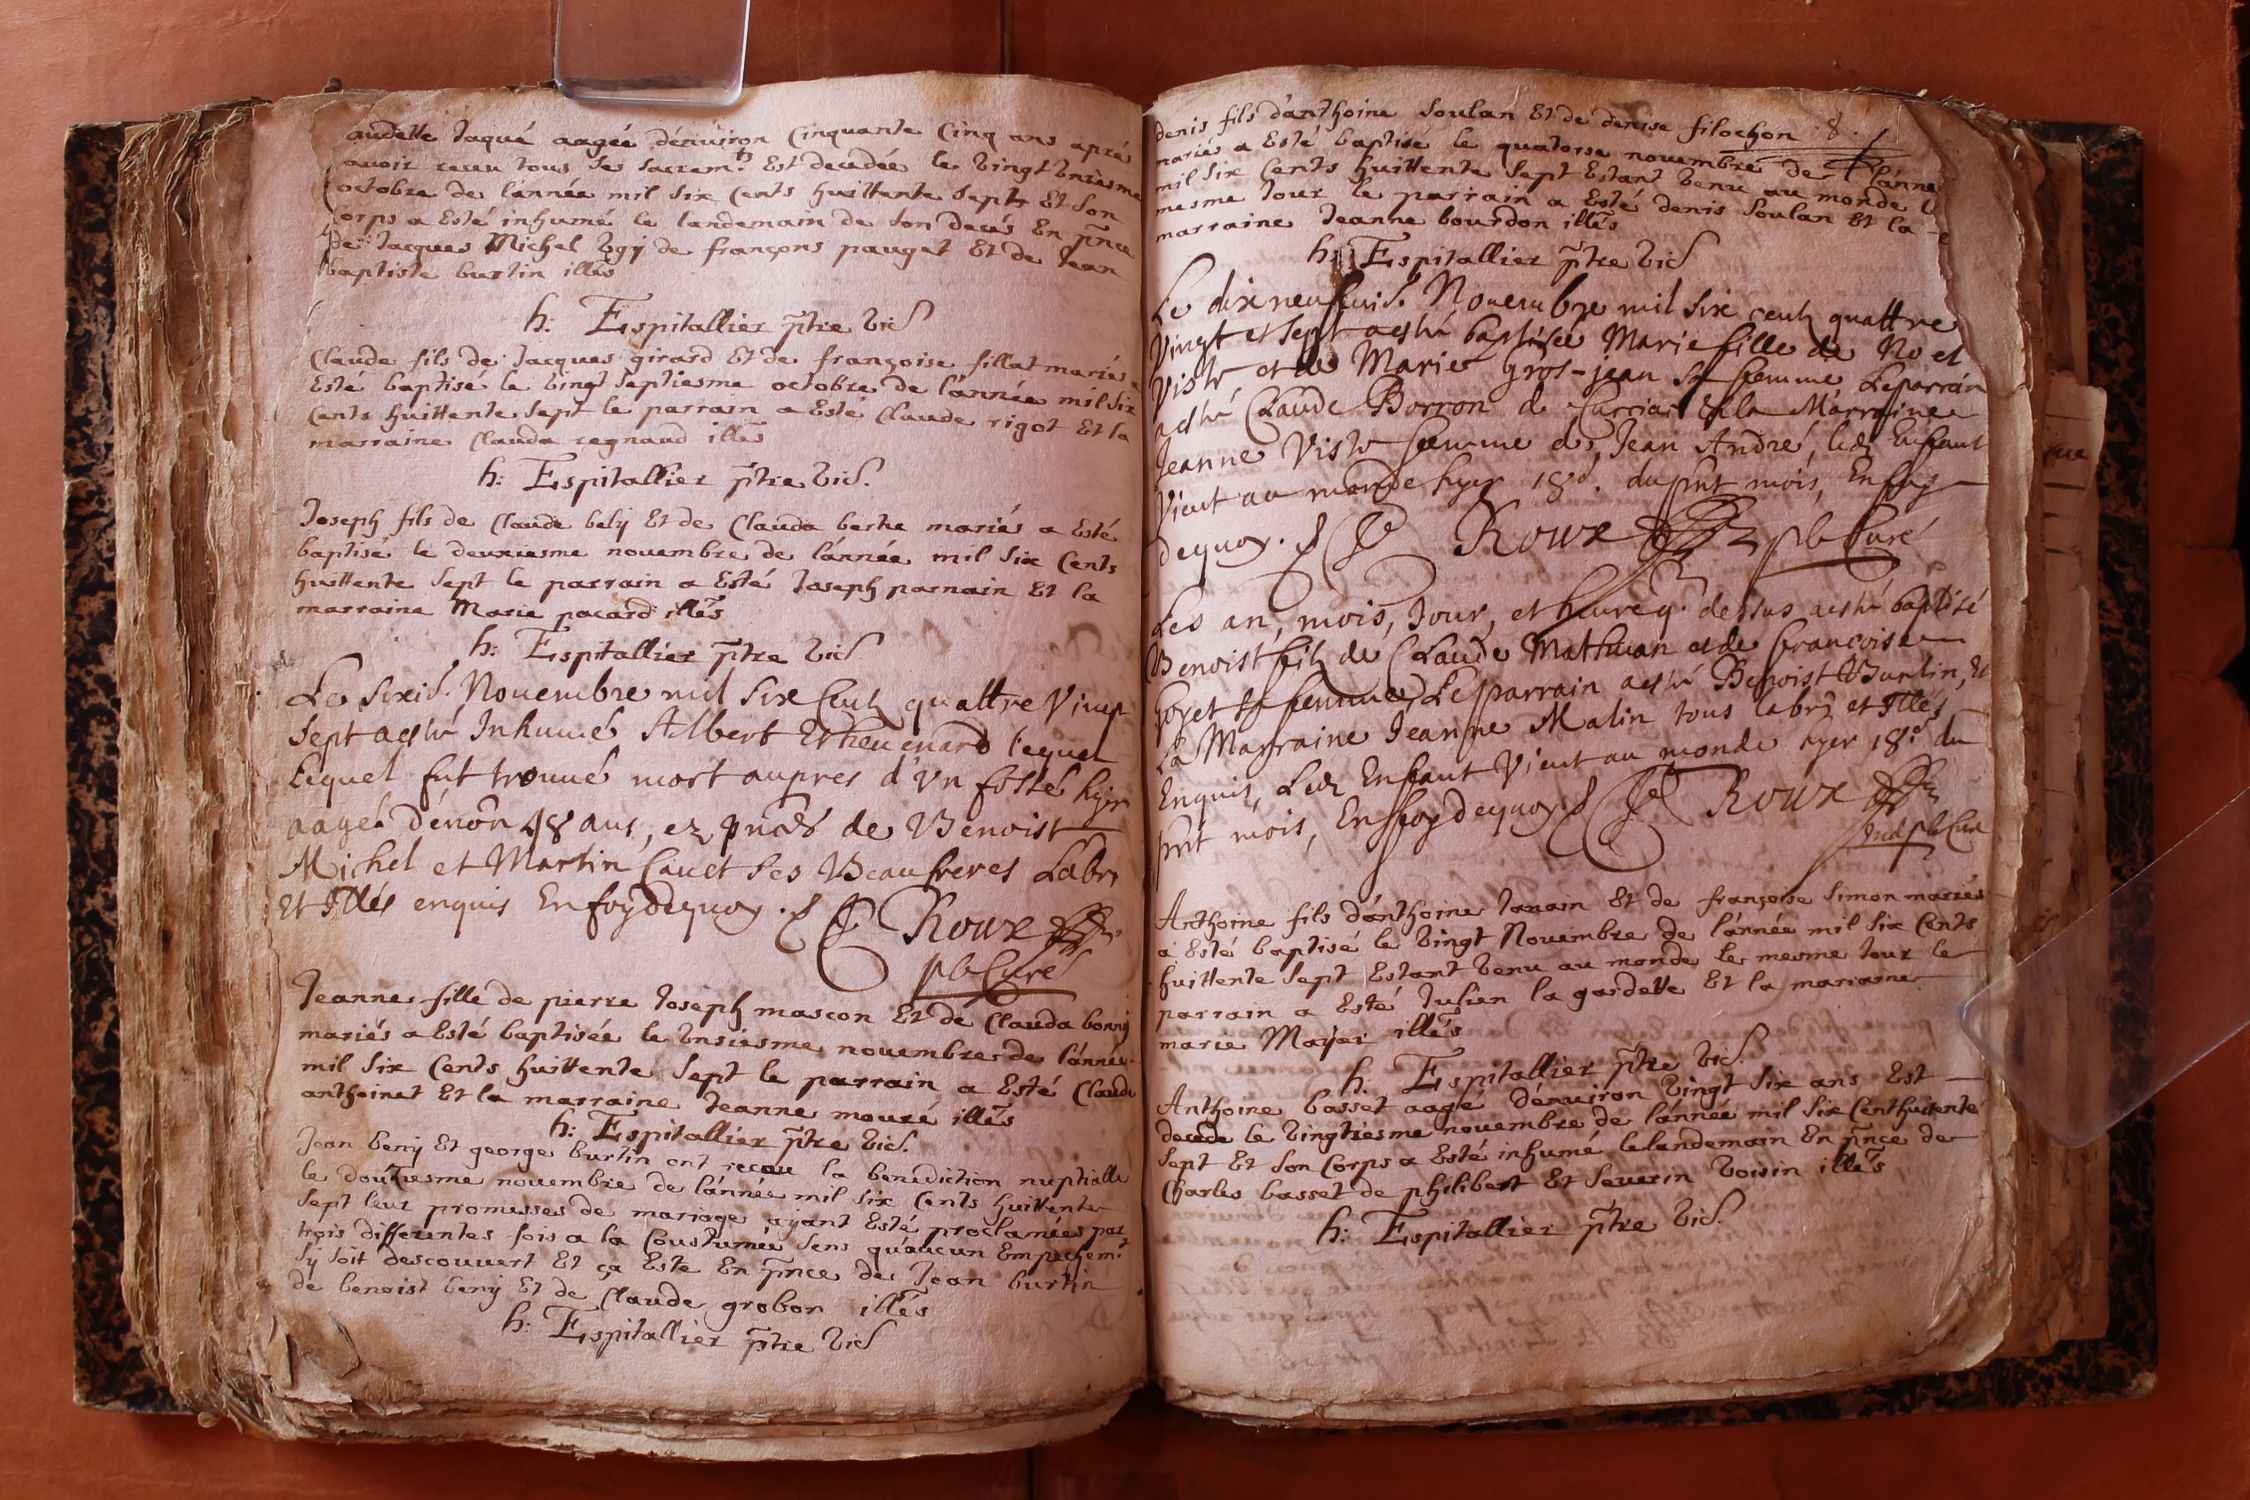 audette Jaqué aagée dénuiron Cinquante Cinq ans aprés
auoir receu tous ses sacrem.ts Est decedée le Vingt Vniesme
octobre de lánnée mil six Cents huittente Sept Et Son
Corps a Esté inhumé le landemain de Son decés En pñce
de Jacques Michel de françons pauget Et de Jean
baptiste burtin illés
h: Espitallier ptre Vic
Claude fils de Jacques girard Et de françoise fillat mariés a
Esté baptisé le Vingt Septiesme octobre de lánnée mil Six
Cents huittente Sept le parrain a Esté Claude rigot Et la
marraine Clauda regnaud illés
h: Espitallier ptre Vic.
Joseph fils de Claude bely Et de Clauda berta mariés a Esté
baptisé le deuxiesme nouembre de lánnée mil Six Cents
huittente Sept le parrain a Esté Joseph parnain Et la
marraine Marie pacard illés
h: Espitallier ptre Vic
Le Sixie. Nouembre mil Six Cent quattre Vingt
Sept a esté Inhumé Albert lequel
lequel fut trouué mort aupres d'Vn fossé hyer
aagé d'enõn 48 ans, ez pñces de Benoist
Michel et Martin Cauet Ses Beaufreres Labrs
Et Illés enquis En foy dequoy. Roux
pb Curé
Jeanne fille de pierre Joseph mascon Et de Clauda bonny
mariés a Esté baptisée le Vnsiesme nouembre de lánnée
mil Six Cents huittente Sept le parrain a Esté Claude
anthoinet Et la marraine Jeanne mouré illés
h: Espitallier ptre Vic.
Jean beny Et george burtin ont receu la benediction nuptialle
le douziesme nouembre de lánnée mil Six Cents huittente
Sept leur promesses de mariage ayant Esté proclamées par
trois differentes fois a la Coustumée Sens quáucun Empechem.t
Sy Soit descouuert Et ça Esté En pñce de Jean burtin
de benoist beny Et de Claude grobon illés
h: Espitallier ptre Vic
denis fils dánthoine Soulan Et de denise filochon . 8 .
mariés a Esté baptisé le quatorse nouembre de lánnée
mil Six Cents huittente Sept Estant Venu au monde le
mesme Jour le parrain a Esté denis Soulan Et la
marraine Jeanne bourdon illés
h: Espitallier ptre Vic
Le dix neufuie. Nouembre mil Six cents quattre
Vingt et Sept a esté baptisée Marie fille de Noel
Viste et de Marie Gros-jean Sa femme Le parrain
a esté Claude Borron de Curciat Et la Marraine
Jeanne Viste femme de Jean André, led. Enffant
Vient au monde hyer 18e. du pnt mois, En foy
dequoy. Roux pb Curé
Les an, mois, Jour, et heure q. dessus a esté baptisé
Benoist filz de Claude Mathuan et de francoise
Goyet Sa femme, Le parrain a esté Benoist Burtin, Et
La Marraine Jeanne Malin tous labrs et Illés
Enquis, Led. Enffant Vient au monde hyer 18.e du
pnt mois, En foy dequoy Roux
pb Curé
Anthoine fils dánthoine Janain Et de françoise Simon mariés
a Esté baptisé le Vingt Nouembre de lánnée mil Six Cents
huittente Sept Estant Venu au monde le mesme Jour le
parrain a Esté Julien la gardette Et la marraine
marie Mayer illés
h. Espitallier ptre Vic.
Anthoine basset aagé dénuiron Vingt Six ans Est
decede le Vingtiesme nouembre de lánnée mil Six Cent huitente
Sept Et Son Corps a Esté inhumé le landemain En pñce de
Charles basset de philibert Et Seuerin Voisin illés
h: Espitallier ptre Vic.